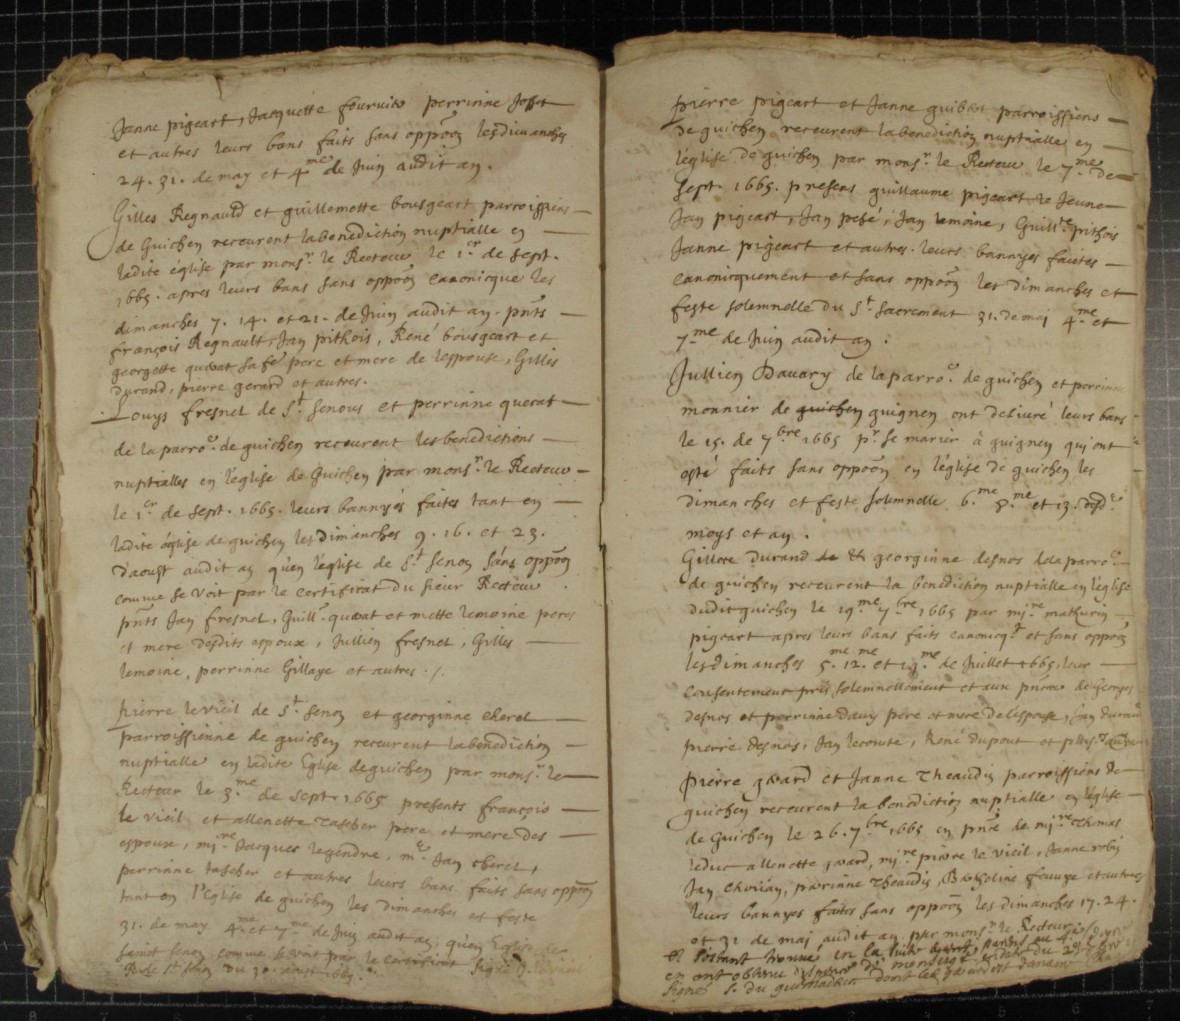 Janne pigeart, Jacquette fournier perrinine Jossit
et autres leurs bans faits sans oppõon lesdimanches
24. 31. de may et 4me de Juin audit an.
Gilles Regnauld et guillemette bousgeart parroissiens
de Guichen receurent la benediction nuptialle en
ladite église par monsr. le Recteur le 1er de sept.
1665. apres leurs bans sans oppõon canonicque les
dimanches 7. 14. et 21. de Juin audit an. pnts
françois Regnault, Jan pithois, René bousgeart et
georgette quevat sa fe pere et mere de lespouse, Gilles
Durand, pierre gerard et autres.
Louys fresnel de St Senous et perrinne quevat
de la parroe. de guichen receurent les benedictions
nuptialles en l'église de Guichen par monsr. le Recteur
le 1er de sept. 1665. leurs bannyes faites tant en
ladite église de guichen les dimanches 9. 16. et 23.
d'aoust audit an qu'en l'église de St Senou sans oppõon
comme se voit par le certificat du sieur Recteur
pnts Jan fresnel, Guill. quevat et mette lemoine peres
et mere desdits espoux, Jullien fresnel, Gilles
lemoine, perrinne Gillaye et autres ./.
Pierre le vieil de St. Senou et georginne cherel
parroissienne de guichen receurent la benediction
nuptialle en ladite Eglise de guichen par monsr. le
Recteur le 3.me de Sept. 1665 presents françois
le vieil et allenette Tascher pere et mere des
espoux, mire Jacques legendre, me Jan cherel,
perrinne tascher et autres leurs bans faits sans oppõon
tant en l'Eglise de guichen les dimanches et feste
31. de may 4me et 7me de Juin audit an, qu'en Eglise de
saint Senou comme se voit par le certificat
dudit St Senou du 30 aoust 1665.
Pierre pigeart et Janne guibert parroissiens
de guichen receurent la benediction nuptialle en
l'église de guichen par monsr. le Recteur le 7.me de
Sept. 1665. presens guillaume pigeart le Jeune
Jan pigeart, Jan pesé, Jan lemoine, Guillte pithois
Janne pigeart et autres. leurs bannyes faictes
canonicquement et sans oppõon les dimanches et
feste solemnelle du St. Sacrement 31. de mai 4.me et
7.me de Juin audit an.
Jullien Davary de la parroe. de guichen et perrinne
monnier de guichen guignen ont delivré leurs bans
le 15. de 7bre 1665 pr. se marier à guignen qui ont
esté faits sans oppõon en l'église de guichen les
dimanches et feste solemnelle 6.me 8.me et 13. dudt
moys et an.
Gillore Durand de & georginne desnos de la parroe
de guichen receurent la benediction nuptialle en l'église
dudit guichen le 19.me 7bre, 1665 par mire mathurin
pigeart apres leurs bans faits canonicqt et sans oppõon
les dimanches 5.me 12.me et 19.me de Juillet 1665, leur
consentement pris solemnellement et aux pnce de Georges
desnos et perrinne davy pere et mere de lespouse, Jan durand
pierre desnos, Jan lecomte, René dupont et plusrs autres
Pierre gerard et Janne Theaudin parroissiens de
guichen receurent la benediction nuptialle en l'église
de Guichen le 26. 7bre, 1665 en pnce de mire Thomas
leduc allenette gerard, mire pierre le vieil, Janne robin
Jan chevrier, perrinne Theaudin, Bertheline et autres
leurs bannyes faites sans oppõon les dimanches 17. 24.
et 31 de mai audit an par monsr. le Recteur
et s'estant trouvé en la suite parens au 4e
en ont obtenu dispance de monseigr.
signé